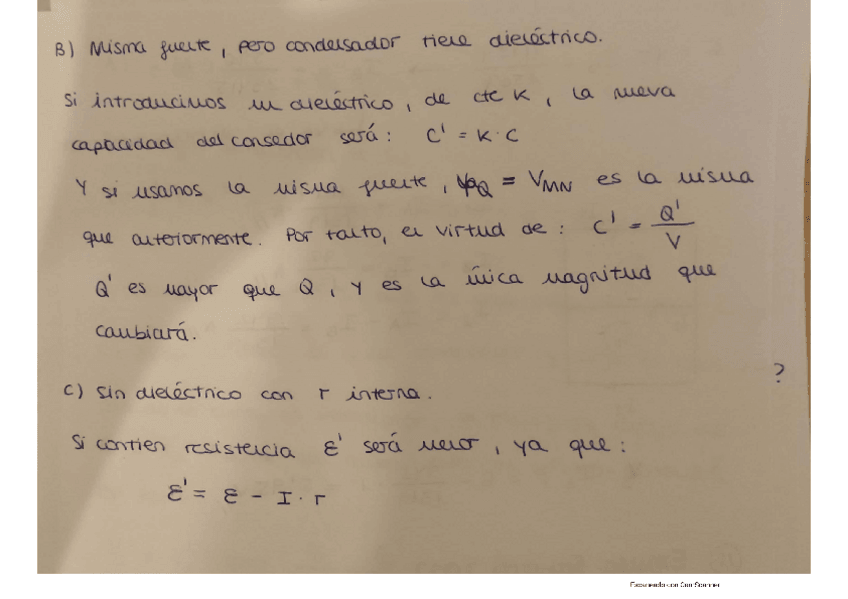 B) Misma fuerte, pero condensador tiene dieléctrico.
Si introducimos un dieléctrico, de cte K, la nueva
capacidad del consedor será: C' = K · C
Y si usamos la misma fuerte, = VMN es la misma
que anteriormente. Por tanto, en virtud de: C' = Q' / V
Q' es mayor que Q, y es la única magnitud que
cambiará.
?
C) Sin dieléctrico con r interna.
Si contien resistencia ε' será menor, ya que:
ε' = ε - I · r
Escaneado con CamScanner